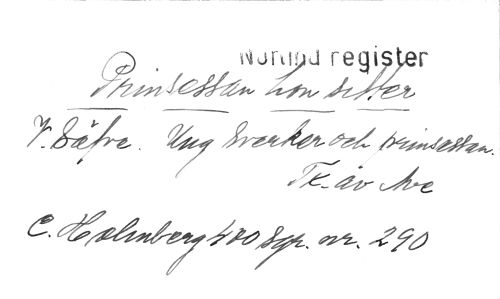 Norlind register
Prinsessan hon sitter
V. Säfve. Ung Sverker och prinsessan.
Tr. av Ave
C. Holmberg 400 Sgr. nr. 290